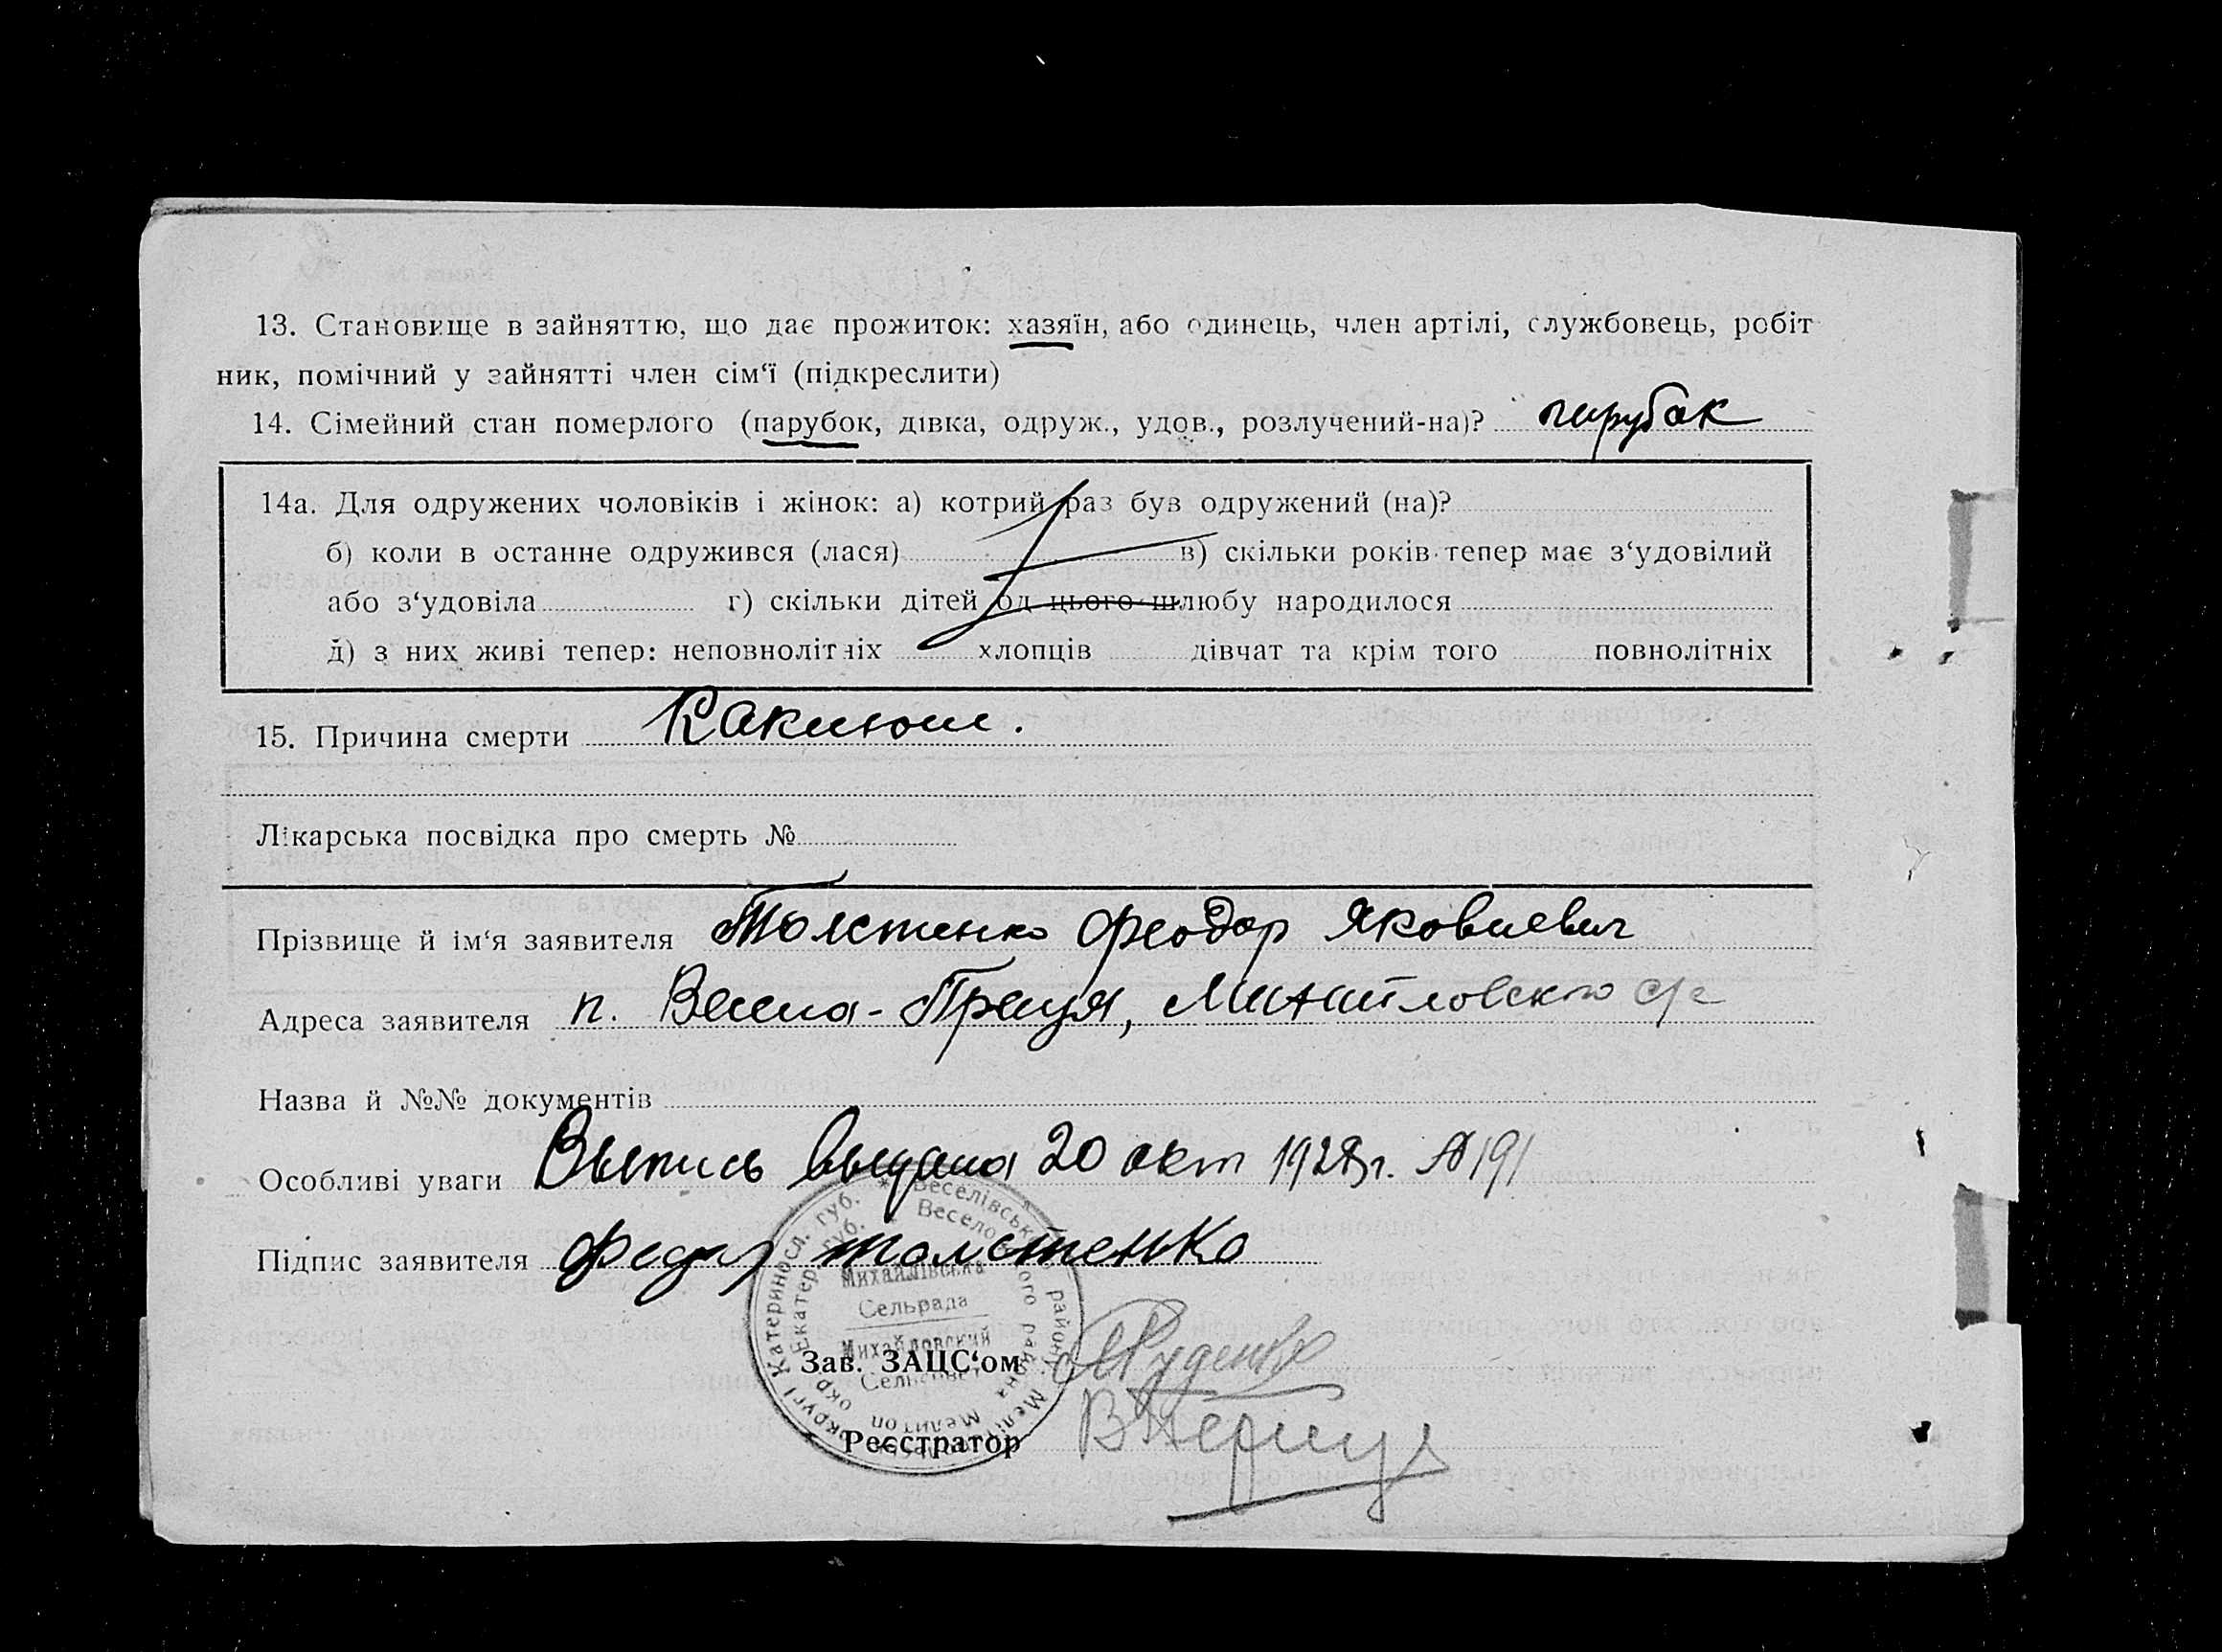 13. Становище в зайняттю, що дає прожиток: хазяїн, або одинець, член артілі, службовець, робіт
ник, помічний у зайнятті член сім‘ї (підкреслити)
14. Сімейний стан померлого (парубок, дівка, одруж., удов., розлучений-на)? парубак
14а. Для одружених чоловіків і жінок: а) котрий раз був одружений (на)?
б) коли в останне одружився (лася) в) скільки років тепер має з‘удовілий
або з‘удовіла г) скільки дітей од цього шлюбу народилося
д) з них живі тепер: неповнолітніх хлопців дівчат та крім того повнолітніх
15. Причина смерти
Лікарська посвідка про смерть №
Прізвище й ім‘я заявителя Толстенко Феодор Яковлевич
Адреса заявителя п. Весела-Праця, Михайловского с/с
Назва й №№ документів
Особливі уваги Выпись выдана 20 окт 1928г. № 191
Підпис заявителя Федор Толстенко
Катериносл. губ. * Веселівського району Меліт. округі
Екатер. губ. Веселовского района Мелитоп окр
Михайлівська
Сельрада
Михайловский
Сельсовет
Зав. ЗАЦС‘ом Руденко
Реєстратор